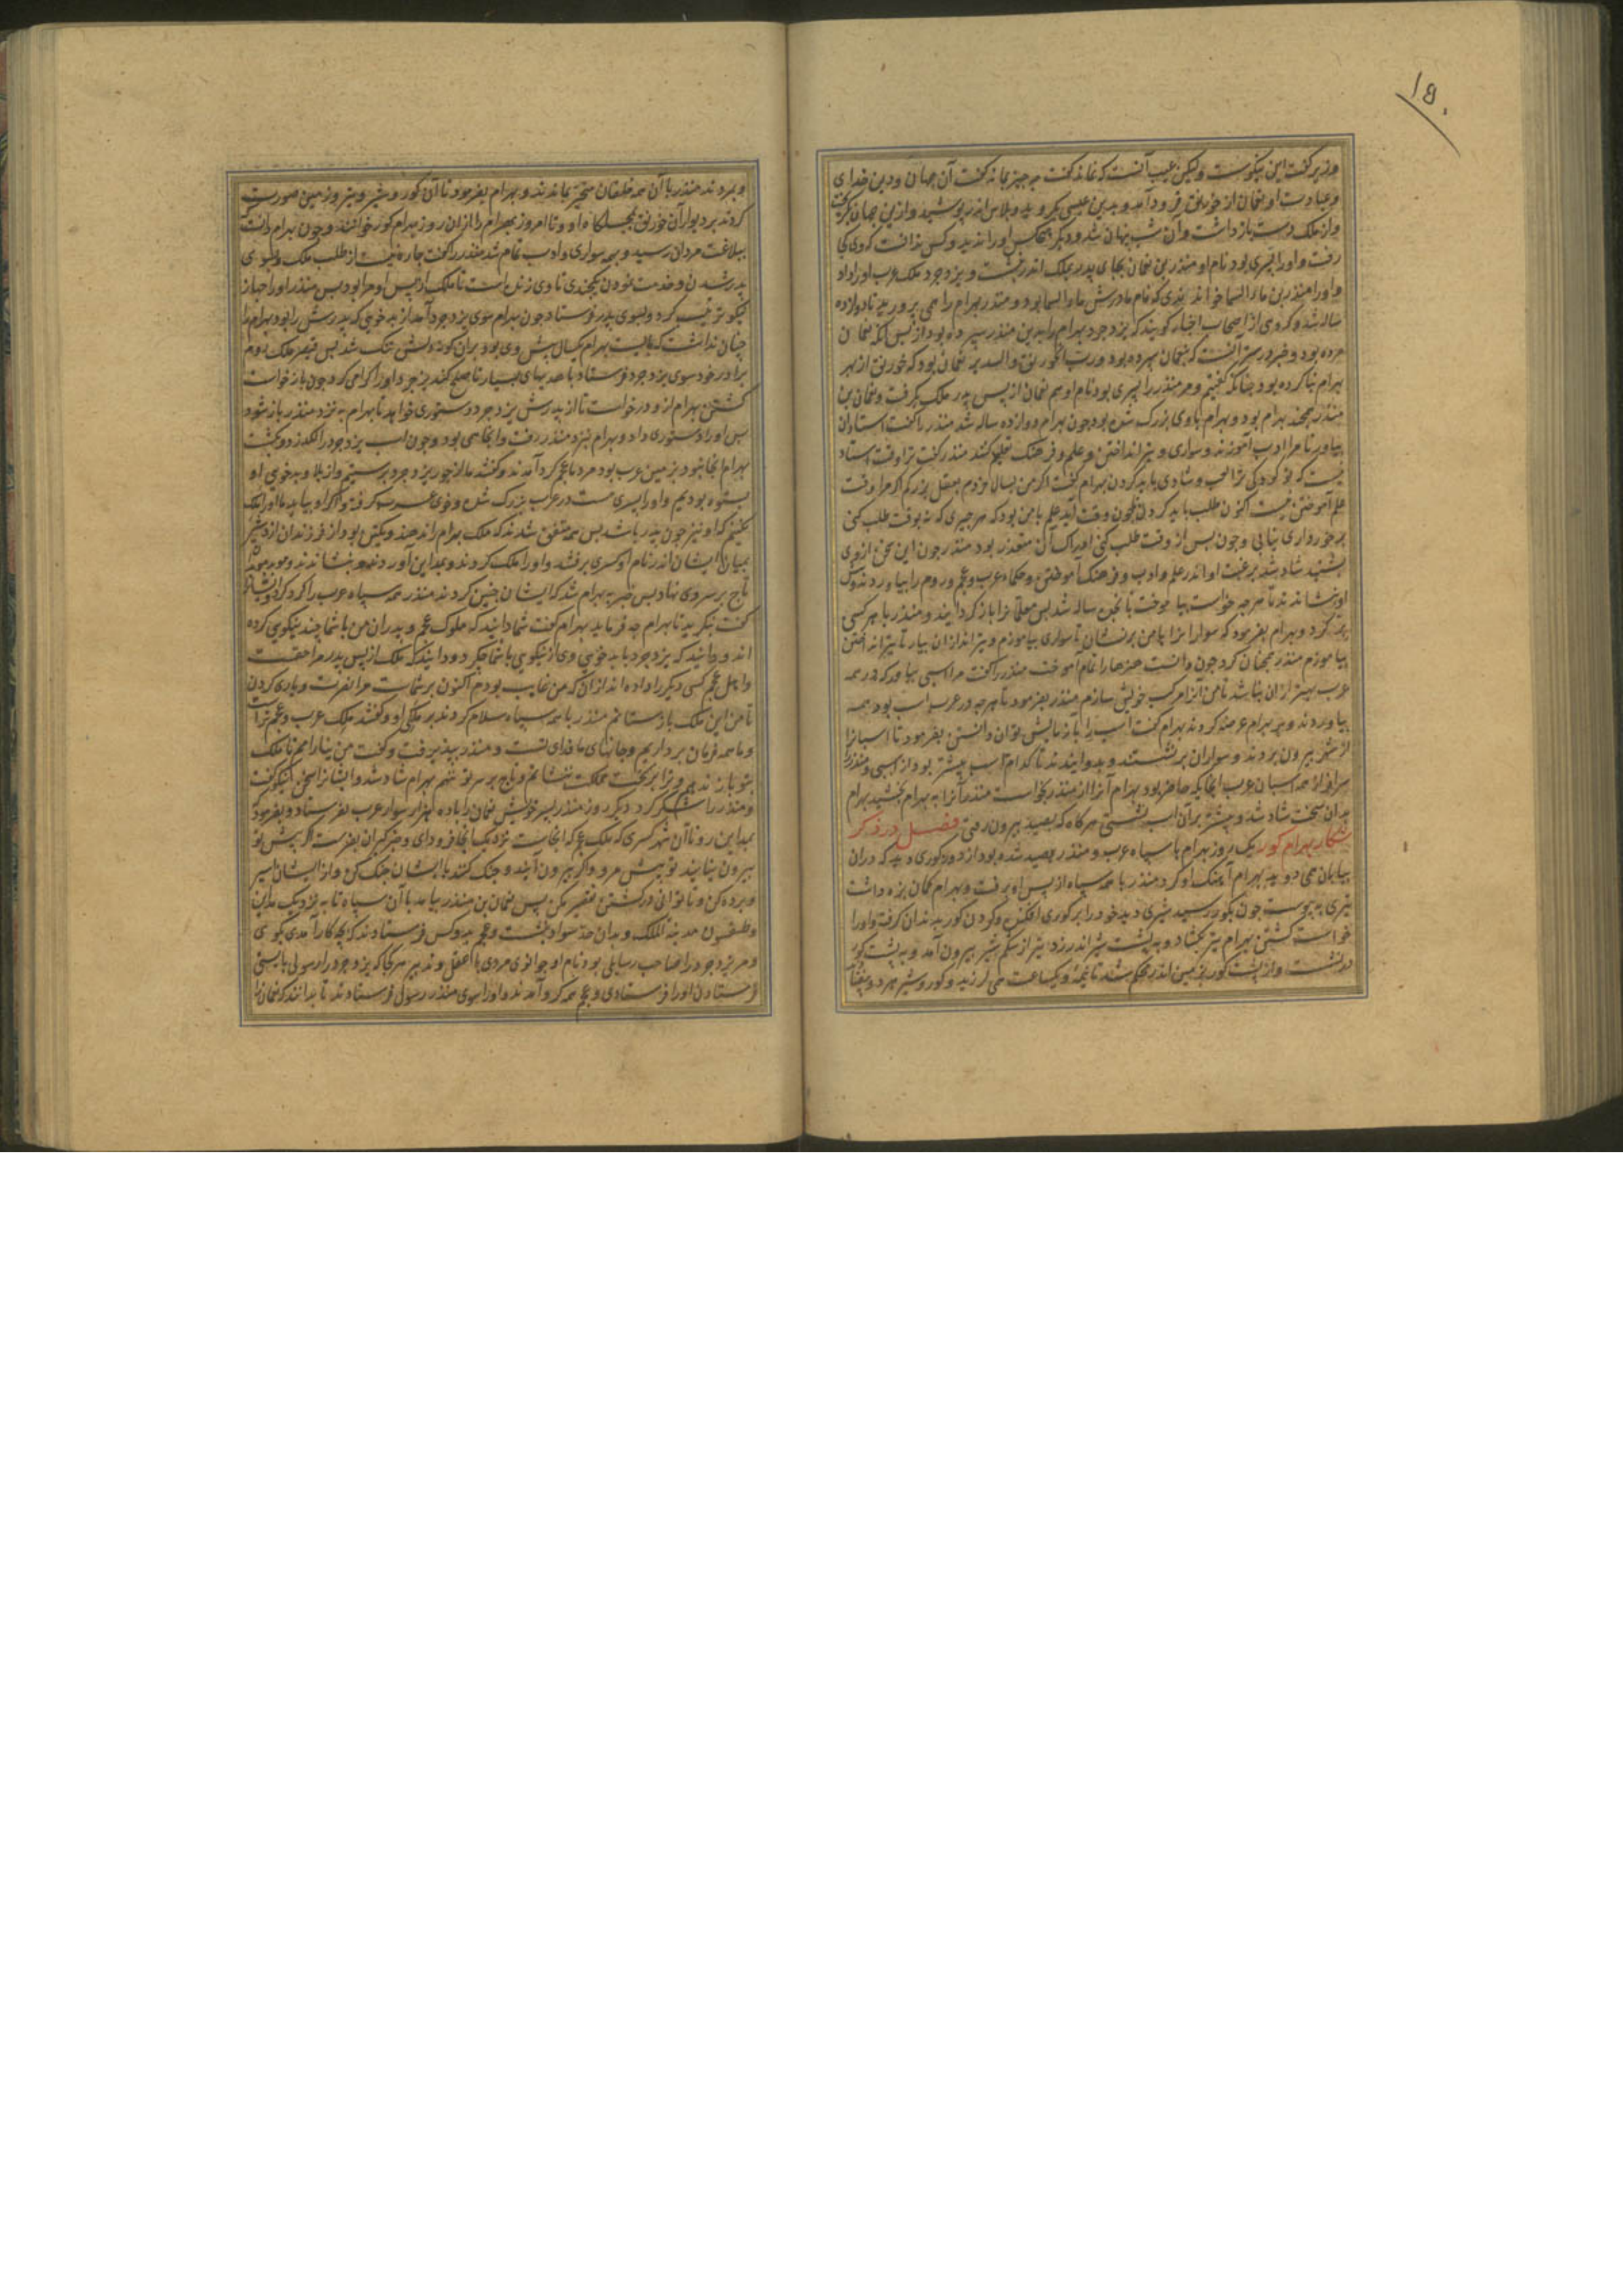 ۱۵۰
وزیر گفت این نیکوست ولیکن عیب آنست که نماند گفت چه چیز بماند گفت آن جهان ودین خدای
وعبادت او نعمان از خورنق فرود آمد وبدین عیسی بگروید وپلاس اندر پوشید وازین جهان بگریخت
واز ملک دست بازداشت وآن شب پنهان شد ودیگر کس اورا ندید وکس ندانست که وی کجا
رفت واورا پسری بود نام او منذر بن نعمان بجای پدر بملک اندر نشست ویزدجرد ملک عرب اورا داد
واورا منذر بن ماء السما خواندندی که نام مادرش ماء السما بود ومنذر بهرام را همی پرورید تا دوازده
ساله شد وگروهی از اصحاب اخبار گویند که یزدجرد بهرام را بدین منذر سپرده بود از پس آنکه نعمان
مرده بود وخبر درست آنست که بنعمان سپرده بود ورب الخورنق والسدیر نعمان بود که خورنق از بهر
بهرام بنا کرده بود چنانکه گفتیم ومر منذر را پسری بود نام او هم نعمان از پس پدر ملک بگرفت ونعمان بن
منذر همچند بهرام بود وبهرام با وی بزرگ شده بود چون بهرام دوازده ساله شد منذر را گفت استادان
بیاور تا مرا ادب آموزند وسواری وتیر انداختن وعلم وفرهنگ تعلیم کنند منذر گفت ترا وقت استاد
نیست که تو کودکی ترا لعب وشادی باید کردن بهرام گفت اگر من بسال خردم بعقل بزرگم اگر مرا وقت
علم آموختن نیست اکنون طلب باید کردن تا چون وقت آید علم با من بود که هر چیزی که نه بوقت طلب کنی
برخورداری نیابی وچون پس از وقت طلب کنی ادراک آن متعذر بود منذر چون این سخن ازوی
بشنید شاد شد برغبت او اندر علم وادب وفرهنگ آموختن وحکماء عرب وعجم وروم را بیاوردند وپیش
او بنشاندند تا هر چه خواست بیاموخت تا پنج ساله شد پس معلمانرا باز گردانیدند ومنذر با هر کسی
کرد وبهرام بفرمود که سوارانرا با من برنشان تا سواری بیاموزم وتیر اندازان بیار تا تیر انداختن
بیاموزم منذر همچنان کرد چون دانست هنرها را تمام آموخت منذر را گفت مرا اسبی بیاور که در همه
عرب بهتر ازان نباشد تا من آنرا مرکب خویش سازم منذر بفرمود تا هر چه در عرب اسب بود همه
بیاوردند وبر بهرام عرضه کردند بهرام گفت اسب را بآزمایش توان دانستن بفرمود تا اسبانرا
از شهر بیرون بردند وسواران برنشستند وبدوانیدند تا کدام اسب پیشتر بود از اسبی ومنذر را
سرافراز همه اسبان عرب آنجایگه حاضر بود بهرام آنرا از منذر بخواست منذر آنرا به بهرام بخشید بهرام
بدان سخت شاد شد وپیشتر بر آن اسب نشستی هر گاه که بصید بیرون رفتی فصل در ذکر
شکار بهرام گور یک روز بهرام با سپاه عرب ومنذر بصید شده بود از دور گوری دید که دران
بیابان می دوید بهرام آهنگ او کرد ومنذر با همه سپاه از پس او برفت وبهرام کمان بزه داشت
تیری بپیوست چون بگور رسید شیری دید خود را بر گوری افکنده وگردن گور بدندان گرفته واورا
خواست کشتن بهرام تیر بگشاد وبه پشت شیر اندر زد تیر از شکم شیر بیرون آمد وبه پشت گور
درنشست واز پشت گور بزمین اندر محکم شد تا نیمه ویکساعت می لرزید وگور وشیر هر دو بیفتاد
وبمردند منذر با آن همه خلقان متحیر بماندند وبهرام بفرمود تا آن گور وشیر وتیر وزمین صورت
کردند بر دیوار آن خورنق بجلسگاه او وتا امروز بهرام را ازان روز بهرام گور خوانند وچون بهرام دانست که
ببلاغت مردان رسید وبهمه سواری وادب تمام شد منذر را گفت چاره نیست از طلب ملک وبسوی
پدر شدن وخدمت نمودن یکچندی تا وی زنده است تا ملک از پس او مرا بود پس منذر اورا جهاز
نیکو ترتیب کرد وبسوی پدر فرستاد چون بهرام سوی یزدجرد آمد از بد خویی که پدرش را بود بهرام را
چنان نداشت که بایست بهرام یکسال پیش وی بود بران گونه ودلش تنگ شد پس قیصر ملک روم
برادر خود سوی یزدجرد فرستاد با هدیهای بسیار تا صلح کند یزدجرد اورا گرامی کرد چون بازخواست
گشتن بهرام ازو درخواست تا از پدرش یزدجرد دستوری خواهد تا بهرام به نزد منذر باز شود
پس اورا دستوری داد وبهرام بنزد منذر رفت وآنجا همی بود وچون اسب یزدجرد را لگد زد وبکشت
بهرام آنجا نبود بزمین عرب بود مردمان عجم گرد آمدند وگفتند ما از جور یزدجرد برستیم واز بلا وبدخویی او
بستوه بودیم واورا پسری هست در عرب بزرگ شده وخوی عرب گرفته واگر او بیاید ما اورا ملک
نکنیم که او نیز چون پدر باشد پس همه متفق شدند که ملک بهرام را ندهند ویکتن بود از فرزندان اردشیر
بمیان ایشان اندر نام او کسری برفتند واورا ملک کردند وبمداین آوردند وبنشاندند وموبد موبدان
تاج بر سر وی نهاد پس خبر به بهرام شد که ایشان چنین کردند منذر همه سپاه عرب را گرد کرد وایشانرا
گفت بنگرید تا بهرام چه فرماید بهرام گفت شما دانید که ملوک عجم وپدران من با شما چند نیکویی کرده
اند ودانید که یزدجرد با بدخویی وی از نیکویی با شما چکرد ودانید که ملک از پس پدر مرا حقست
واهل عجم کسی دیگر را داده اند ازان که من غایب بودم اکنون بر شماست مرا نصرت ویاری کردن
تا من این ملک بازستانم منذر با همه سپاه سلام کردند بر ملکی او وگفتند ملک عرب وعجم تراست
وما همه فرمان برداریم وجانهای ما فدای تست ومنذر بپذیرفت وگفت من نیارامم تا ملک
بتو باز ندهم وترا بر تخت مملکت ننشانم وتاج بر سر تو ننهم بهرام شاد شد وایشانرا سخن نیکو گفت
ومنذر را شکر کرد دیگر روز منذر پسر خویش نعمان را با ده هزار سوار عرب بفرستاد وبفرمود
بمداین رو تا آن شهر کسری که ملک عجم که آنجاست نزدیک آنجا فرود آی وخبرگیران بفرست اگر پیش تو
بیرون نیایند تو پیش مرو واگر بیرون آیند وجنگ کنند با ایشان جنگ کن واز ایشان اسیر
وبرده کن وتا توانی در کشتن تقصیر مکن پس نعمان بن منذر بیامد با آن سپاه تا به نزدیک مداین
وطیسفون مدینة الملک وبدان حد سواد بنشست وعجم بدو کس فرستادند که بچه کار آمدی بگوی
ومر یزدجرد را صاحب رسایلی بود نام او جوانوی مردی با عقل وتدبیر هر کجا که یزدجرد را رسولی بایستی
فرستادن اورا فرستادی وعجم همه گرد آمدند واورا سوی منذر رسول فرستادند تا بدانند که نعمان را